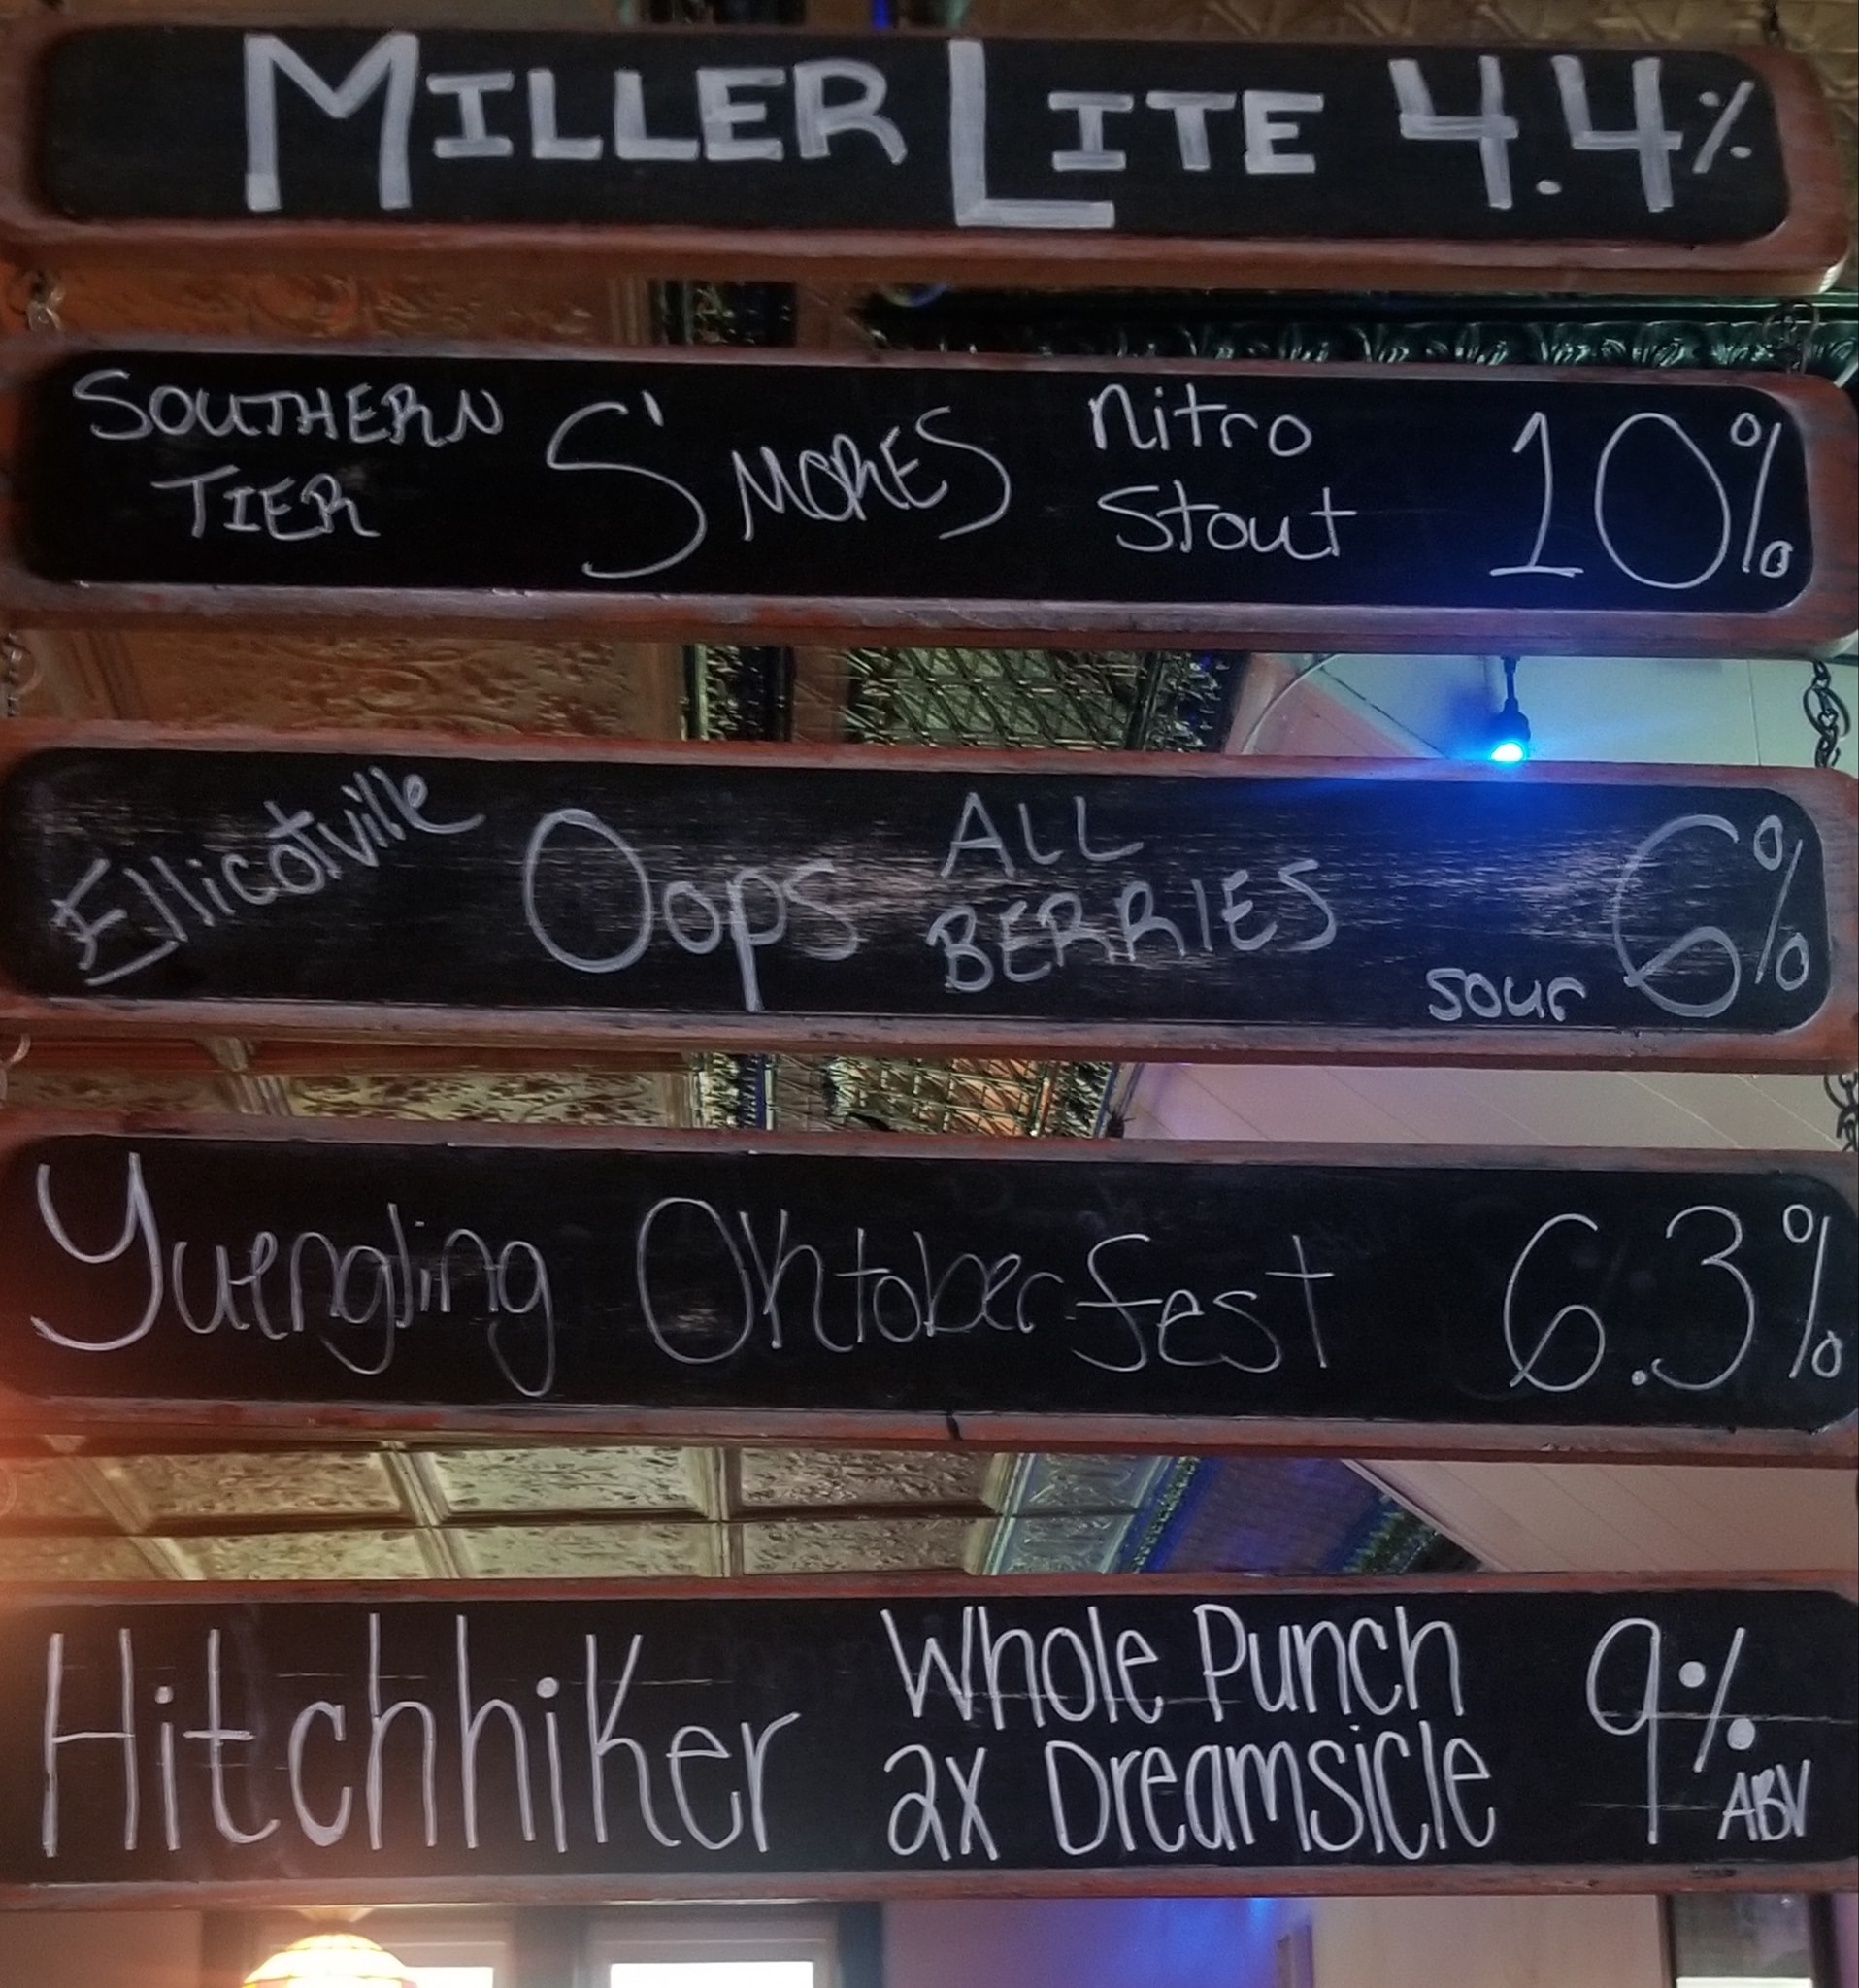 MILLER LITE 4.4%
SOUTHERN TIER S'MORES Nitro Stout 10%
Ellicotville Oops ALL BERRIES sour 6%
Yuengling Oktoberfest 6.3%
Hitchhiker Whole Punch 2x Dreamsicle 9% ABV